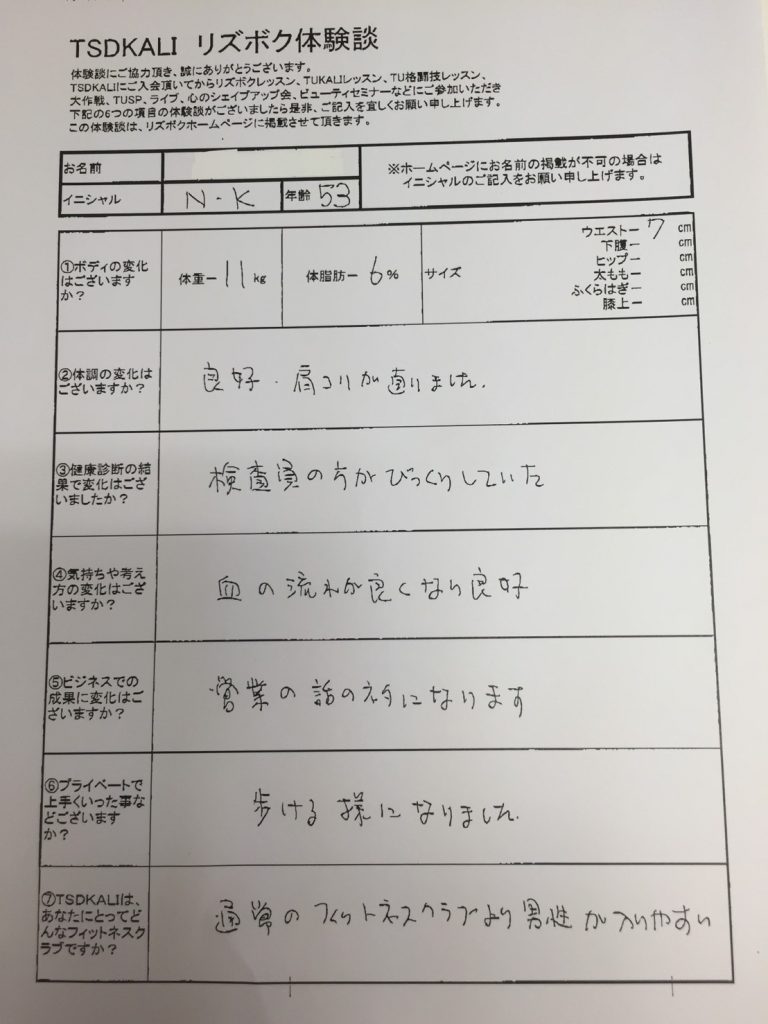 TSDKALI リズボク体験談
体験談にご協力頂き、誠にありがとうございます。
TSDKALIにご入会頂いてからリズボクレッスン、TUKALIレッスン、TU格闘技レッスン、
大作戦、TUSP、ライブ、心のシェイプアップ会、ビューティセミナーなどにご参加いただき
下記の6つの項目の体験談がございましたら是非、ご記入を宜しくお願い申し上げます。
この体験談は、リズボクホームページに掲載させて頂きます。
お名前
※ホームページにお名前の掲載が不可の場合は
イニシャルのご記入をお願い申し上げます。
イニシャル N-K 年齢 53
①ボディの変化
はございます
か?
体重ー 11kg
体脂肪ー 6%
サイズ
ウエストー 7 cm
下腹ー cm
ヒップー cm
太ももー cm
ふくらはぎー cm
膝上ー cm
②体調の変化は
ございますか?
良好・肩コリが直りました.
③健康診断の結
果で変化はござ
いましたか?
検査員の方がびっくりしていた
④気持ちや考え
方の変化はござ
いますか?
血の流れが良くなり良好
⑤ビジネスでの
成果に変化はご
ざいますか?
営業の話のネタになります
⑥プライベートで
上手くいった事な
どございます
か?
歩ける様になりました.
⑦TSDKALIは、
あなたにとってど
んなフィットネスク
ラブですか?
通常のフィットネスクラブより男性が入りやすい